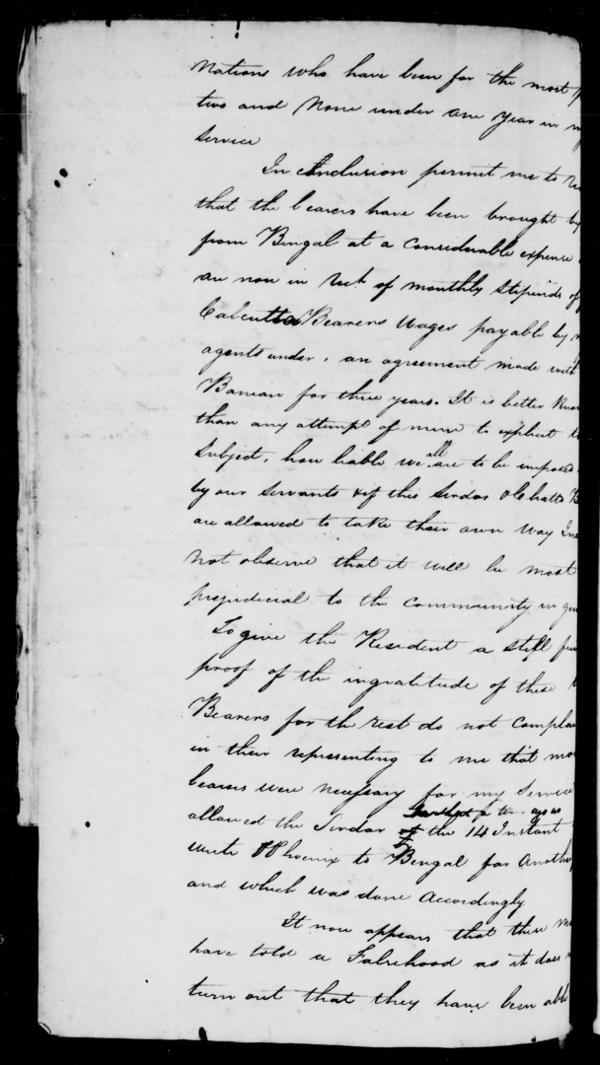 Nations who have been for the most
two and None under one year in
Service
In Conclusion permit me to
that the bearers have been brought by
from Bengal at a Considerable expence
are now in of monthly Stipends of
Calcutta Bearers Wages payable by
agents under, an agreement made with
Banian for three years. It is better
than any attempt of mine to
Subject, how liable we all are to be imposed
by our Servants & if this Sirdar
are allowed to take their own Way
not observe that it will be most
prejudicial to the Community in
To give the Resident a still
proof of the ingratitude of these
Bearers for the rest do not
in their representing to me that
bearers were necessary for my Service
allowed the Sirdar the 14 Instant
write to Bengal for
and which was done Accordingly
It now appears that these
have told a Falsehood as it does
turn out that they have been